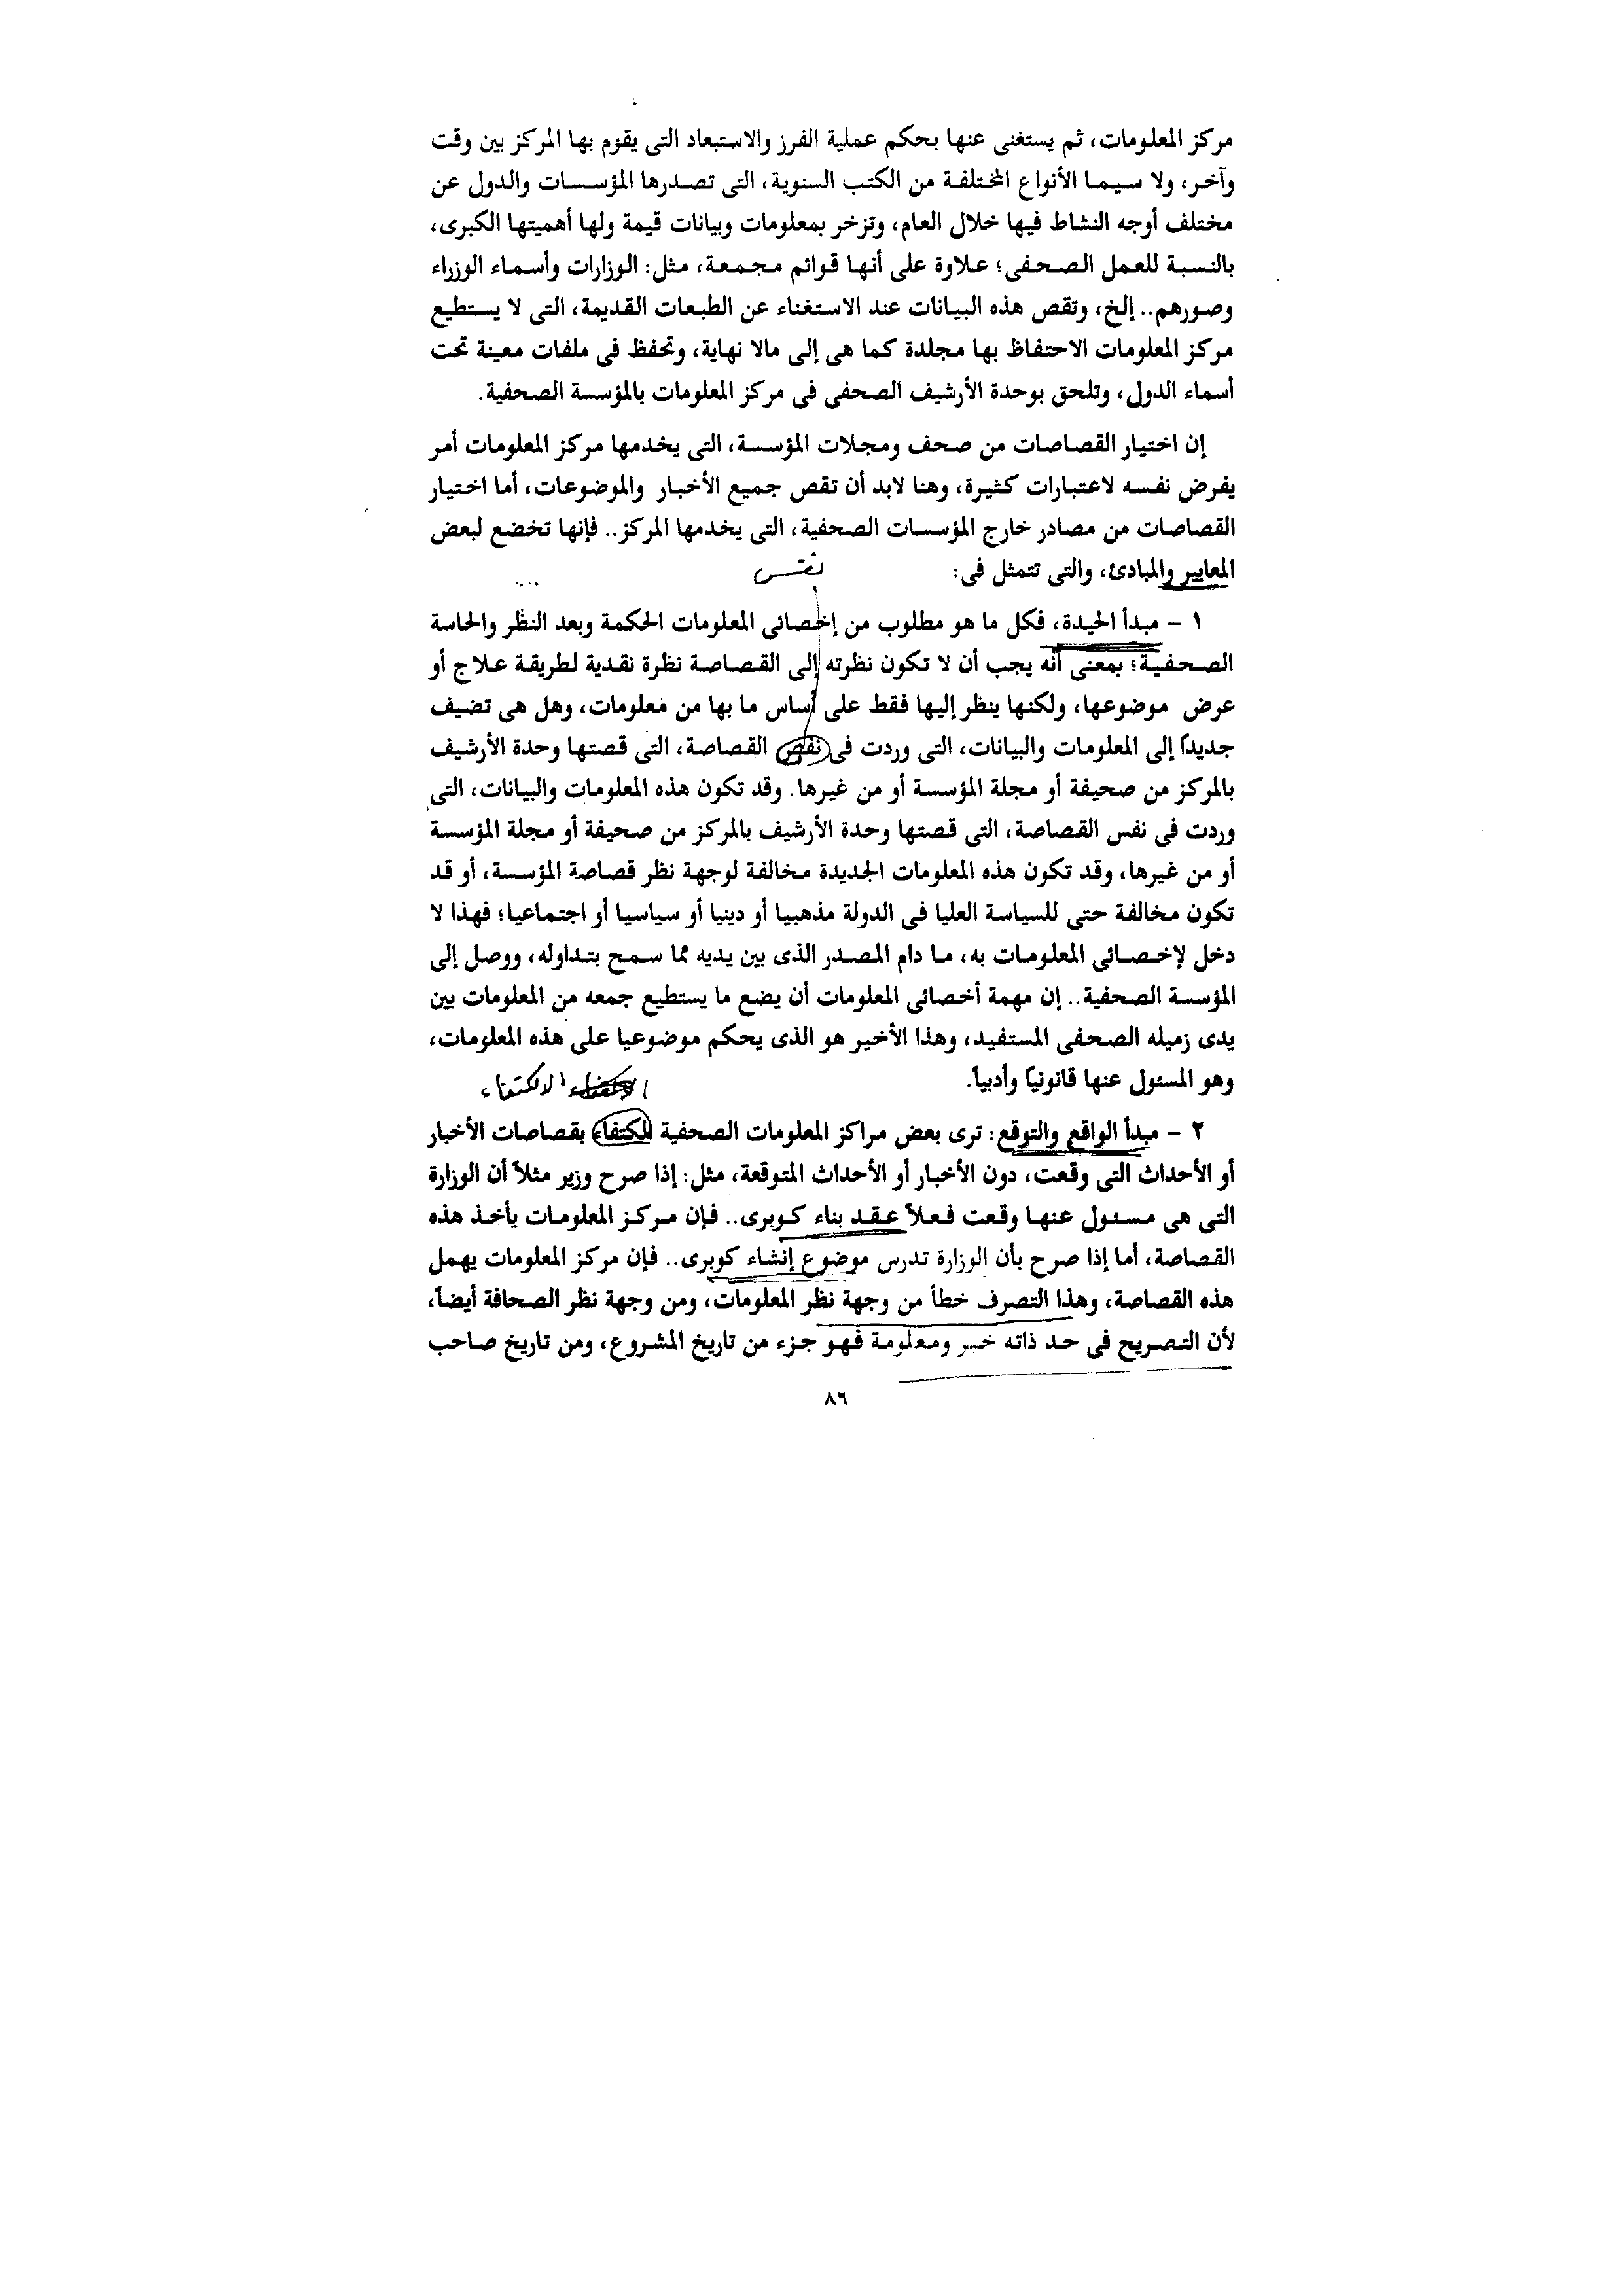 مركز المعلومات، ثم يستغنى عنها بحكم عملية الفرز والاستبعاد التى يقوم بها المركز بين وقت
وآخر، ولا سيما الأنواع المختلفة من الكتب السنوية، التى تصدرها المؤسسات والدول عن
مختلف أوجه النشاط فيها خلال العام، وتزخر بمعلومات وبيانات قيمة ولها أهميتها الكبرى،
بالنسبة للعمل الصحفى؛ علاوة على أنها قوائم مجمعة، مثل: الوزارات وأسماء الوزراء
وصورهم.. إلخ، وتقص هذه البيانات عند الاستغناء عن الطبعات القديمة، التى لا يستطيع
مركز المعلومات الاحتفاظ بها مجلدة كما هى إلى مالا نهاية، وتحفظ فى ملفات معينة تحت
أسماء الدول، وتلحق بوحدة الأرشيف الصحفى فى مركز المعلومات بالمؤسسة الصحفية.
إن اختيار القصاصات من صحف ومجلات المؤسسة، التى يخدمها مركز المعلومات أمر
يفرض نفسه لاعتبارات كثيرة، وهنا لابد أن تقص جميع الأخبار والموضوعات، أما اختيار
القصاصات من مصادر خارج المؤسسات الصحفية، التى يخدمها المركز.. فإنها تخضع لبعض
المعايير والمبادئ، والتى تتمثل فى:
نفس
١ - مبدأ الحيدة، فكل ما هو مطلوب من إخصائى المعلومات الحكمة وبعد النظر والحاسة
الصحفية؛ بمعنى أنه يجب أن لا تكون نظرته إلى القصاصة نظرة نقدية لطريقة علاج أو
عرض موضوعها، ولكنها ينظر إليها فقط على أساس ما بها من معلومات، وهل هى تضيف
جديداً إلى المعلومات والبيانات، التى وردت فى نفص القصاصة، التى قصتها وحدة الأرشيف
بالمركز من صحيفة أو مجلة المؤسسة أو من غيرها. وقد تكون هذه المعلومات والبيانات، التى
وردت فى نفس القصاصة، التى قصتها وحدة الأرشيف بالمركز من صحيفة أو مجلة المؤسسة
أو من غيرها، وقد تكون هذه المعلومات الجديدة مخالفة لوجهة نظر قصاصة المؤسسة، أو قد
تكون مخالفة حتى للسياسة العليا فى الدولة مذهبيا أو دينيا أو سياسيا أو اجتماعيا؛ فهذا لا
دخل لإخصائى المعلومات به، ما دام المصدر الذى بين يديه مما سمح بتداوله، ووصل إلى
المؤسسة الصحفية.. إن مهمة أخصائى المعلومات أن يضع ما يستطيع جمعه من المعلومات بين
يدى زميله الصحفى المستفيد، وهذا الأخير هو الذى يحكم موضوعيا على هذه المعلومات،
وهو المسئول عنها قانونياً وأدبياً.
الاكتفاء
٢ - مبدأ الواقع والتوقع: ترى بعض مراكز المعلومات الصحفية الكتفاء بقصاصات الأخبار
أو الأحداث التى وقعت، دون الأخبار أو الأحداث المتوقعة، مثل: إذا صرح وزير مثلاً أن الوزارة
التى هى مسئول عنها وقعت فعلاً عقد بناء كوبرى.. فإن مركز المعلومات يأخذ هذه
القصاصة، أما إذا صرح بأن الوزارة تدرس موضوع إنشاء كوبرى.. فإن مركز المعلومات يهمل
هذه القصاصة، وهذا التصرف خطأ من وجهة نظر المعلومات، ومن وجهة نظر الصحافة أيضاً،
لأن التصريح فى حد ذاته خبر ومعلومة فهو جزء من تاريخ المشروع، ومن تاريخ صاحب
٨٦